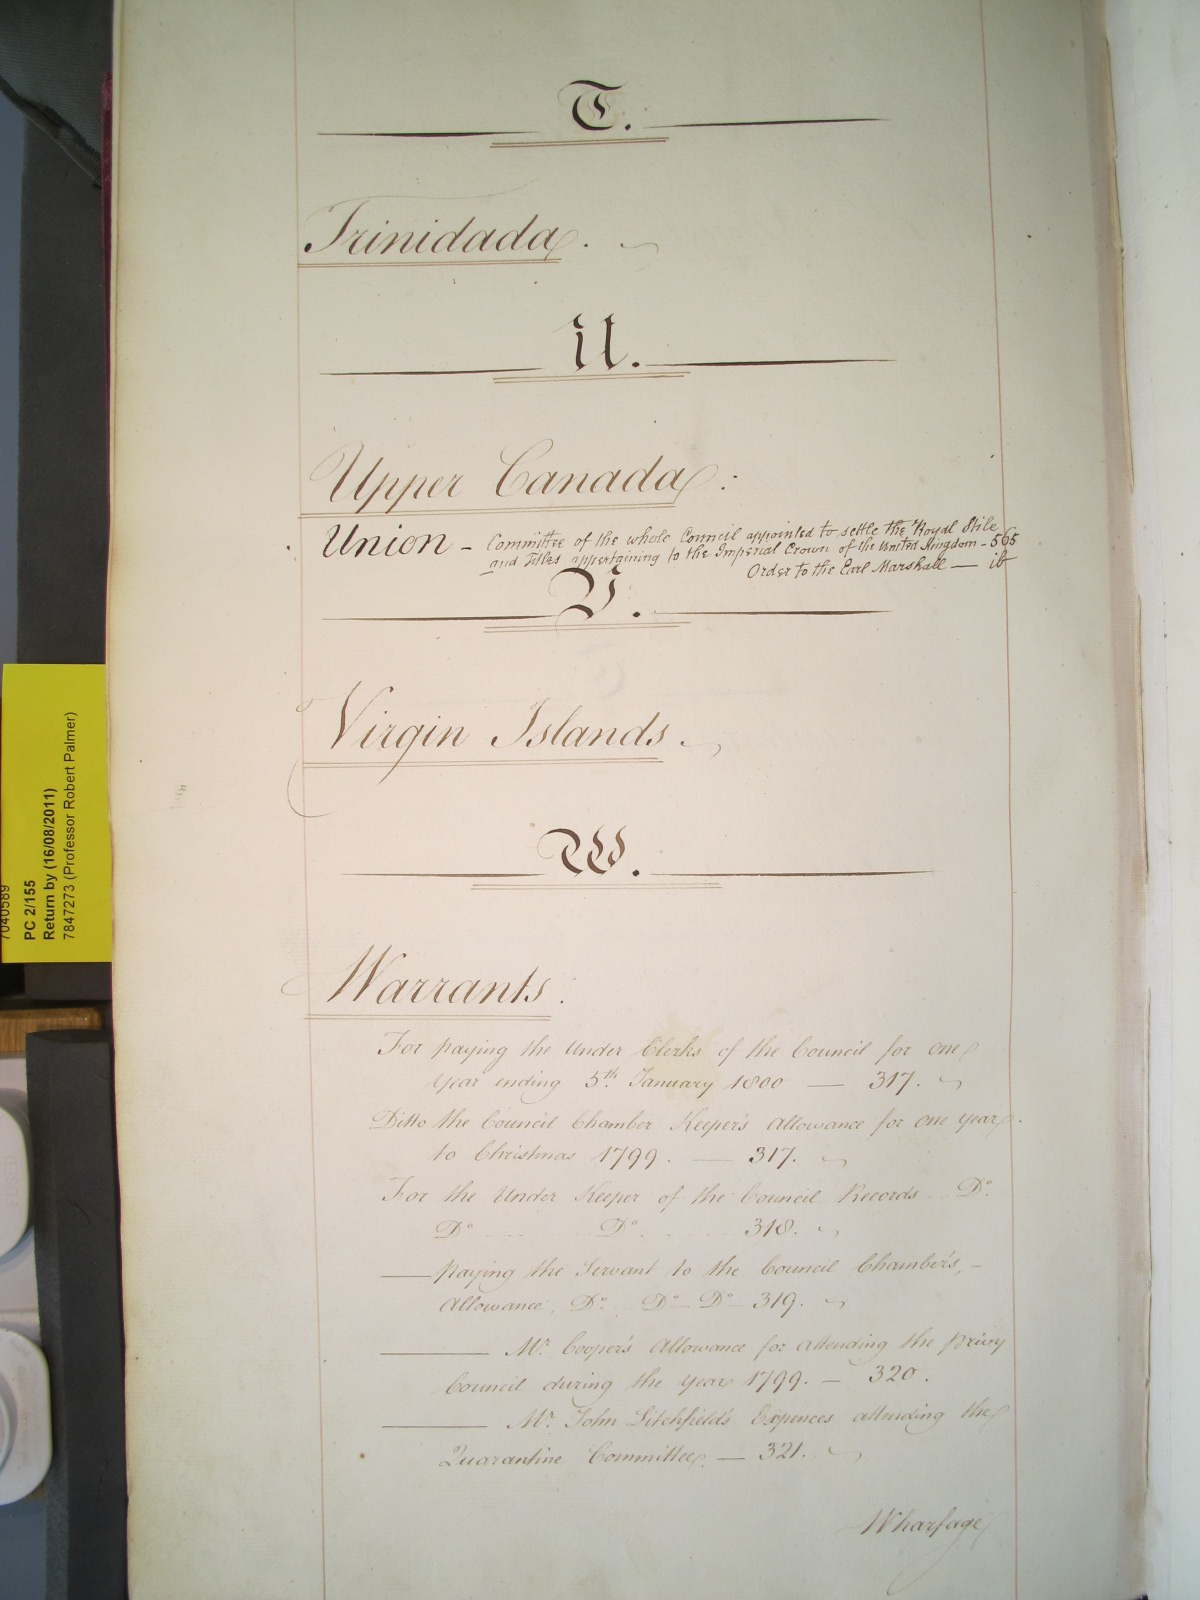 T.
Trinidada.
U.
Upper Canada:
Union - Committee of the whole Council appointed to settle the Royal Stile
and Titles appertaining to the Imperial Crown of the United Kingdom - 565
Order to the Earl Marshall — ib
V.
Virgin Islands.
W.
Warrants.
For paying the Under Clerks of the Council for one
Year ending 5th January 1800 — 317.
Ditto the Council Chamber Keeper's Allowance for one year
to Christmas 1799. — 317.
For the Under Keeper of the Council Records Do.
Do Do 318.
— paying the Servant to the Council Chamber's, -
Allowance, Do Do Do 319.
— Mr. Cooper's Allowance for attending the Privy
Council during the Year 1799. — 320.
— Mr. John Litchfield's Expences attending the
Quarantine Committee. — 321.
Wharfage
7040589
PC 2/155
Return by (16/08/2011)
7847273 (Professor Robert Palmer)